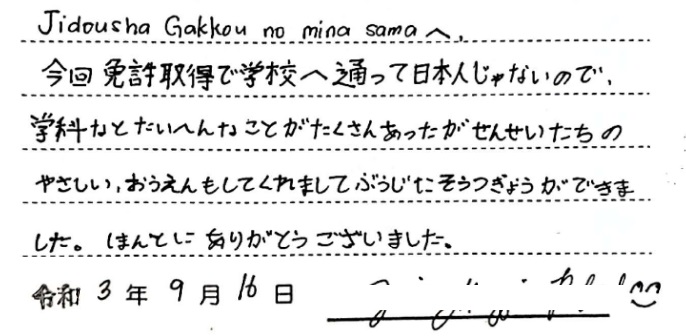 Jidousha Gakkou no mina samaへ,
今回免許取得で学校へ通って日本人じゃないので、
学科などたいへんなことがたくさんあったがせんせいたちの
やさしい,おうえんもしてくれましてぶうじにそうつぎょうができま
した。ほんとにありがとうございました。
令和3年9月16日